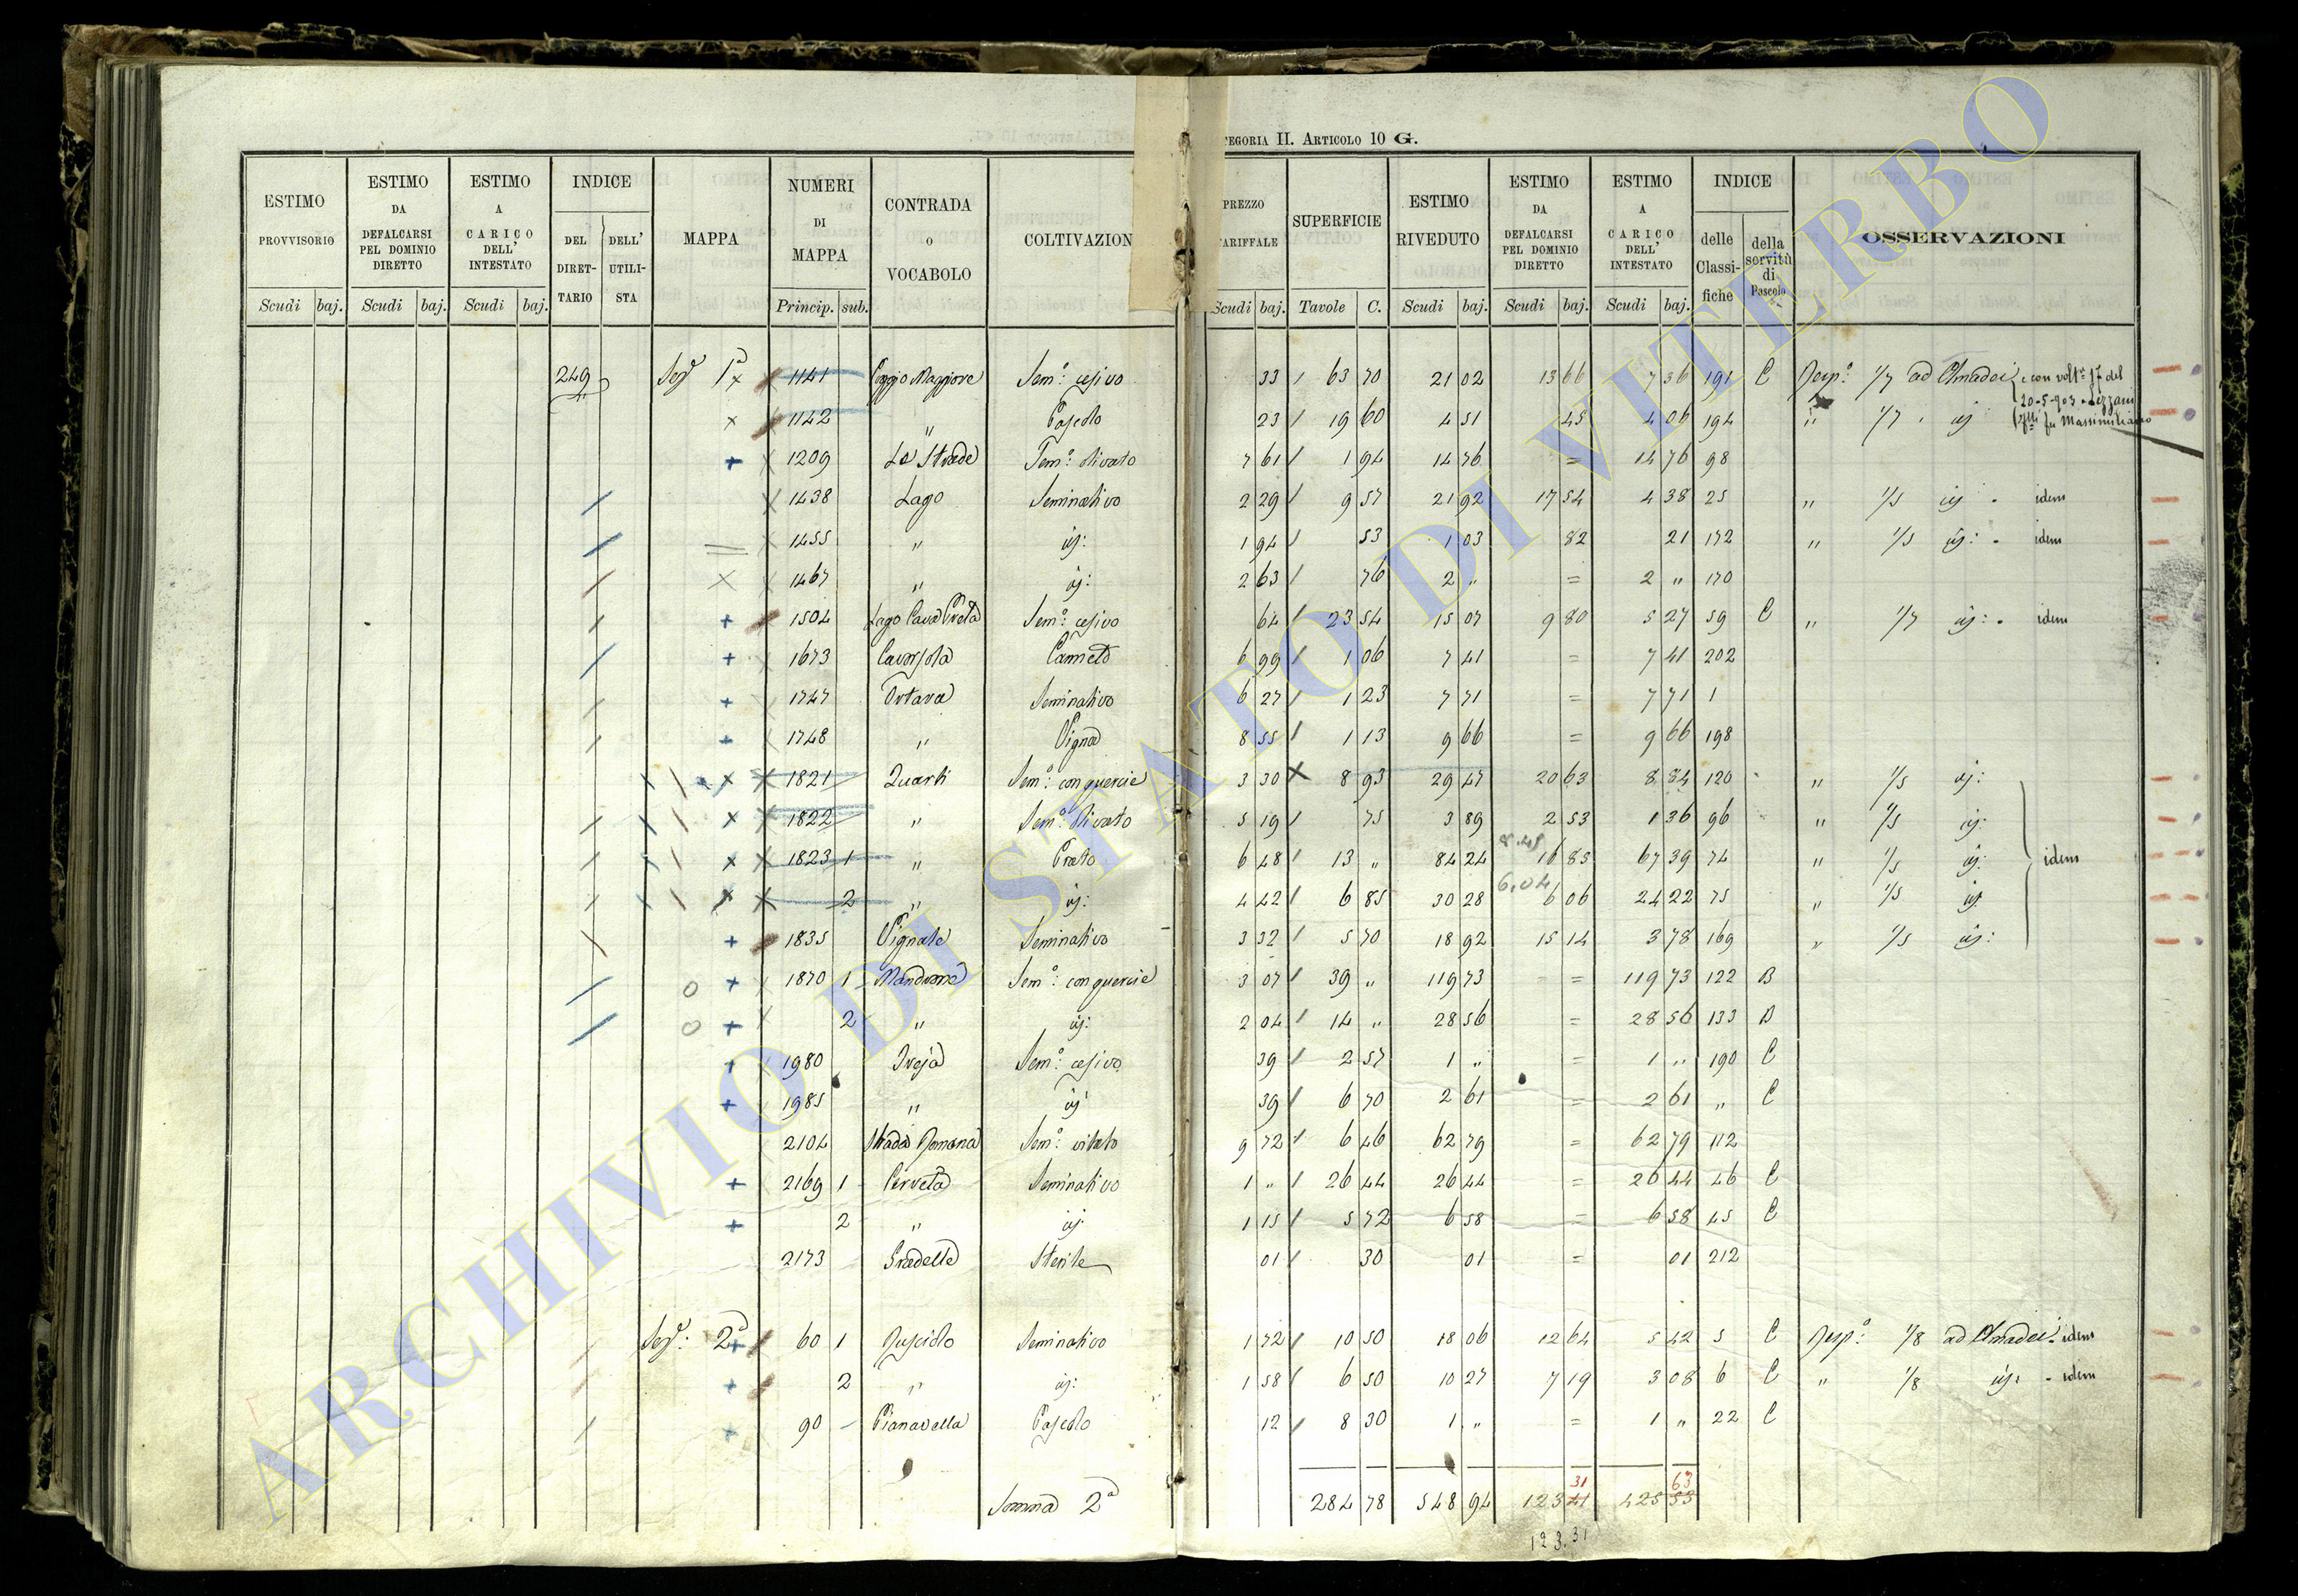 TEGORIA II. ARTICOLO 10 G.
ESTIMO PROVVISORIO Scudi baj.
ESTIMO DA DEFALCARSI PEL DOMINIO DIRETTO Scudi baj.
ESTIMO A CARICO DELL' INTESTATO Scudi baj.
INDICE DEL DIRETTARIO DELL' UTILISTA
MAPPA
NUMERI DI MAPPA Princip. sub.
CONTRADA O VOCABOLO
COLTIVAZION
PREZZO TARIFFALE Scudi baj.
SUPERFICIE Tavole C.
ESTIMO RIVEDUTO Scudi baj.
ESTIMO DA DEFALCARSI PEL DOMINIO DIRETTO Scudi baj.
ESTIMO A CARICO DELL' INTESTATO Scudi baj.
INDICE delle Classifiche della servitù di Pascolo
OSSERVAZIONI
249 Sez 1a 1141 Poggio Maggiore Sem.o cesivo 33 63 70 21 02 13 66 7 36 191 C Risp.o 1/7 ad Amadei e con volt.a 17 del
20-5-903
1142 " Pascolo 23 19 60 4 51 45 4 06 194 " 1/7 " ij fu Massimiliano
1209 Le Strade Sem.o olivato 7 61 1 94 14 76 = 14 76 98
1438 Lago Seminativo 2 29 9 57 21 92 17 54 4 38 25 " 1/5 ij - idem
1455 " ij: 1 94 53 1 03 82 21 172 " 1/5 ij: - idem
1467 " ij: 2 63 76 2 " = 2 " 170
1504 Lago Cava Creta Sem.o cesivo 64 23 54 15 07 9 80 5 27 59 C " 1/7 ij: - idem
1673 Canneto 6 99 1 06 7 41 = 7 41 202
1747 Ortara Seminativo 6 27 1 23 7 71 = 7 71 1
1748 " Vigna 8 55 1 13 9 66 = 9 66 198
1821 Quarti Sem.o con quercie 3 30 8 93 29 47 20 63 8 84 120 " 1/5 ij:
1822 " Sem.o olivato 5 19 75 3 89 2 53 1 36 96 " 1/5 ij:
1823 1 " Prato 6 48 13 " 84 24 16 85 67 39 74 " 1/5 ij: idem
2 " ij: 4 42 6 85 30 28 6.04 6 06 24 22 75 " 1/5 ij
1835 Vignale Seminativo 3 32 5 70 18 92 15 14 3 78 169 " 1/5 ij:
1870 1 Mandrone Sem.o con quercie 3 07 39 " 119 73 = 119 73 122 B
2 " ij: 2 04 14 " 28 56 = 28 56 133 B
1980 Sem.o cesivo 39 2 57 1 " = 1 " 190 C
1985 " ij 39 6 70 2 61 = 2 61 " C
2104 Strada Romana Sem.o vitato 9 72 6 46 62 79 = 62 79 112
2169 1 Cerreta Seminativo 1 " 26 44 26 44 = 26 44 46 C
2 " ij 1 15 5 72 6 58 = 6 58 45 C
2173 Gradelle Sterile 01 30 01 = 01 212
Sez: 2a 60 1 Seminativo 1 72 10 50 18 06 12 64 5 42 5 C Risp.o 1/8 ad Amadei - idem
2 " ij: 1 58 6 50 10 27 7 19 3 08 6 C " 1/8 ij: - idem
90 - Pianavella Pascolo 12 8 30 1 " = 1 " 22 C
31 63
Somma 2a 284 78 548 94 123 41 425 53
123.31
ARCHIVIO DI STATO DI VITERBO